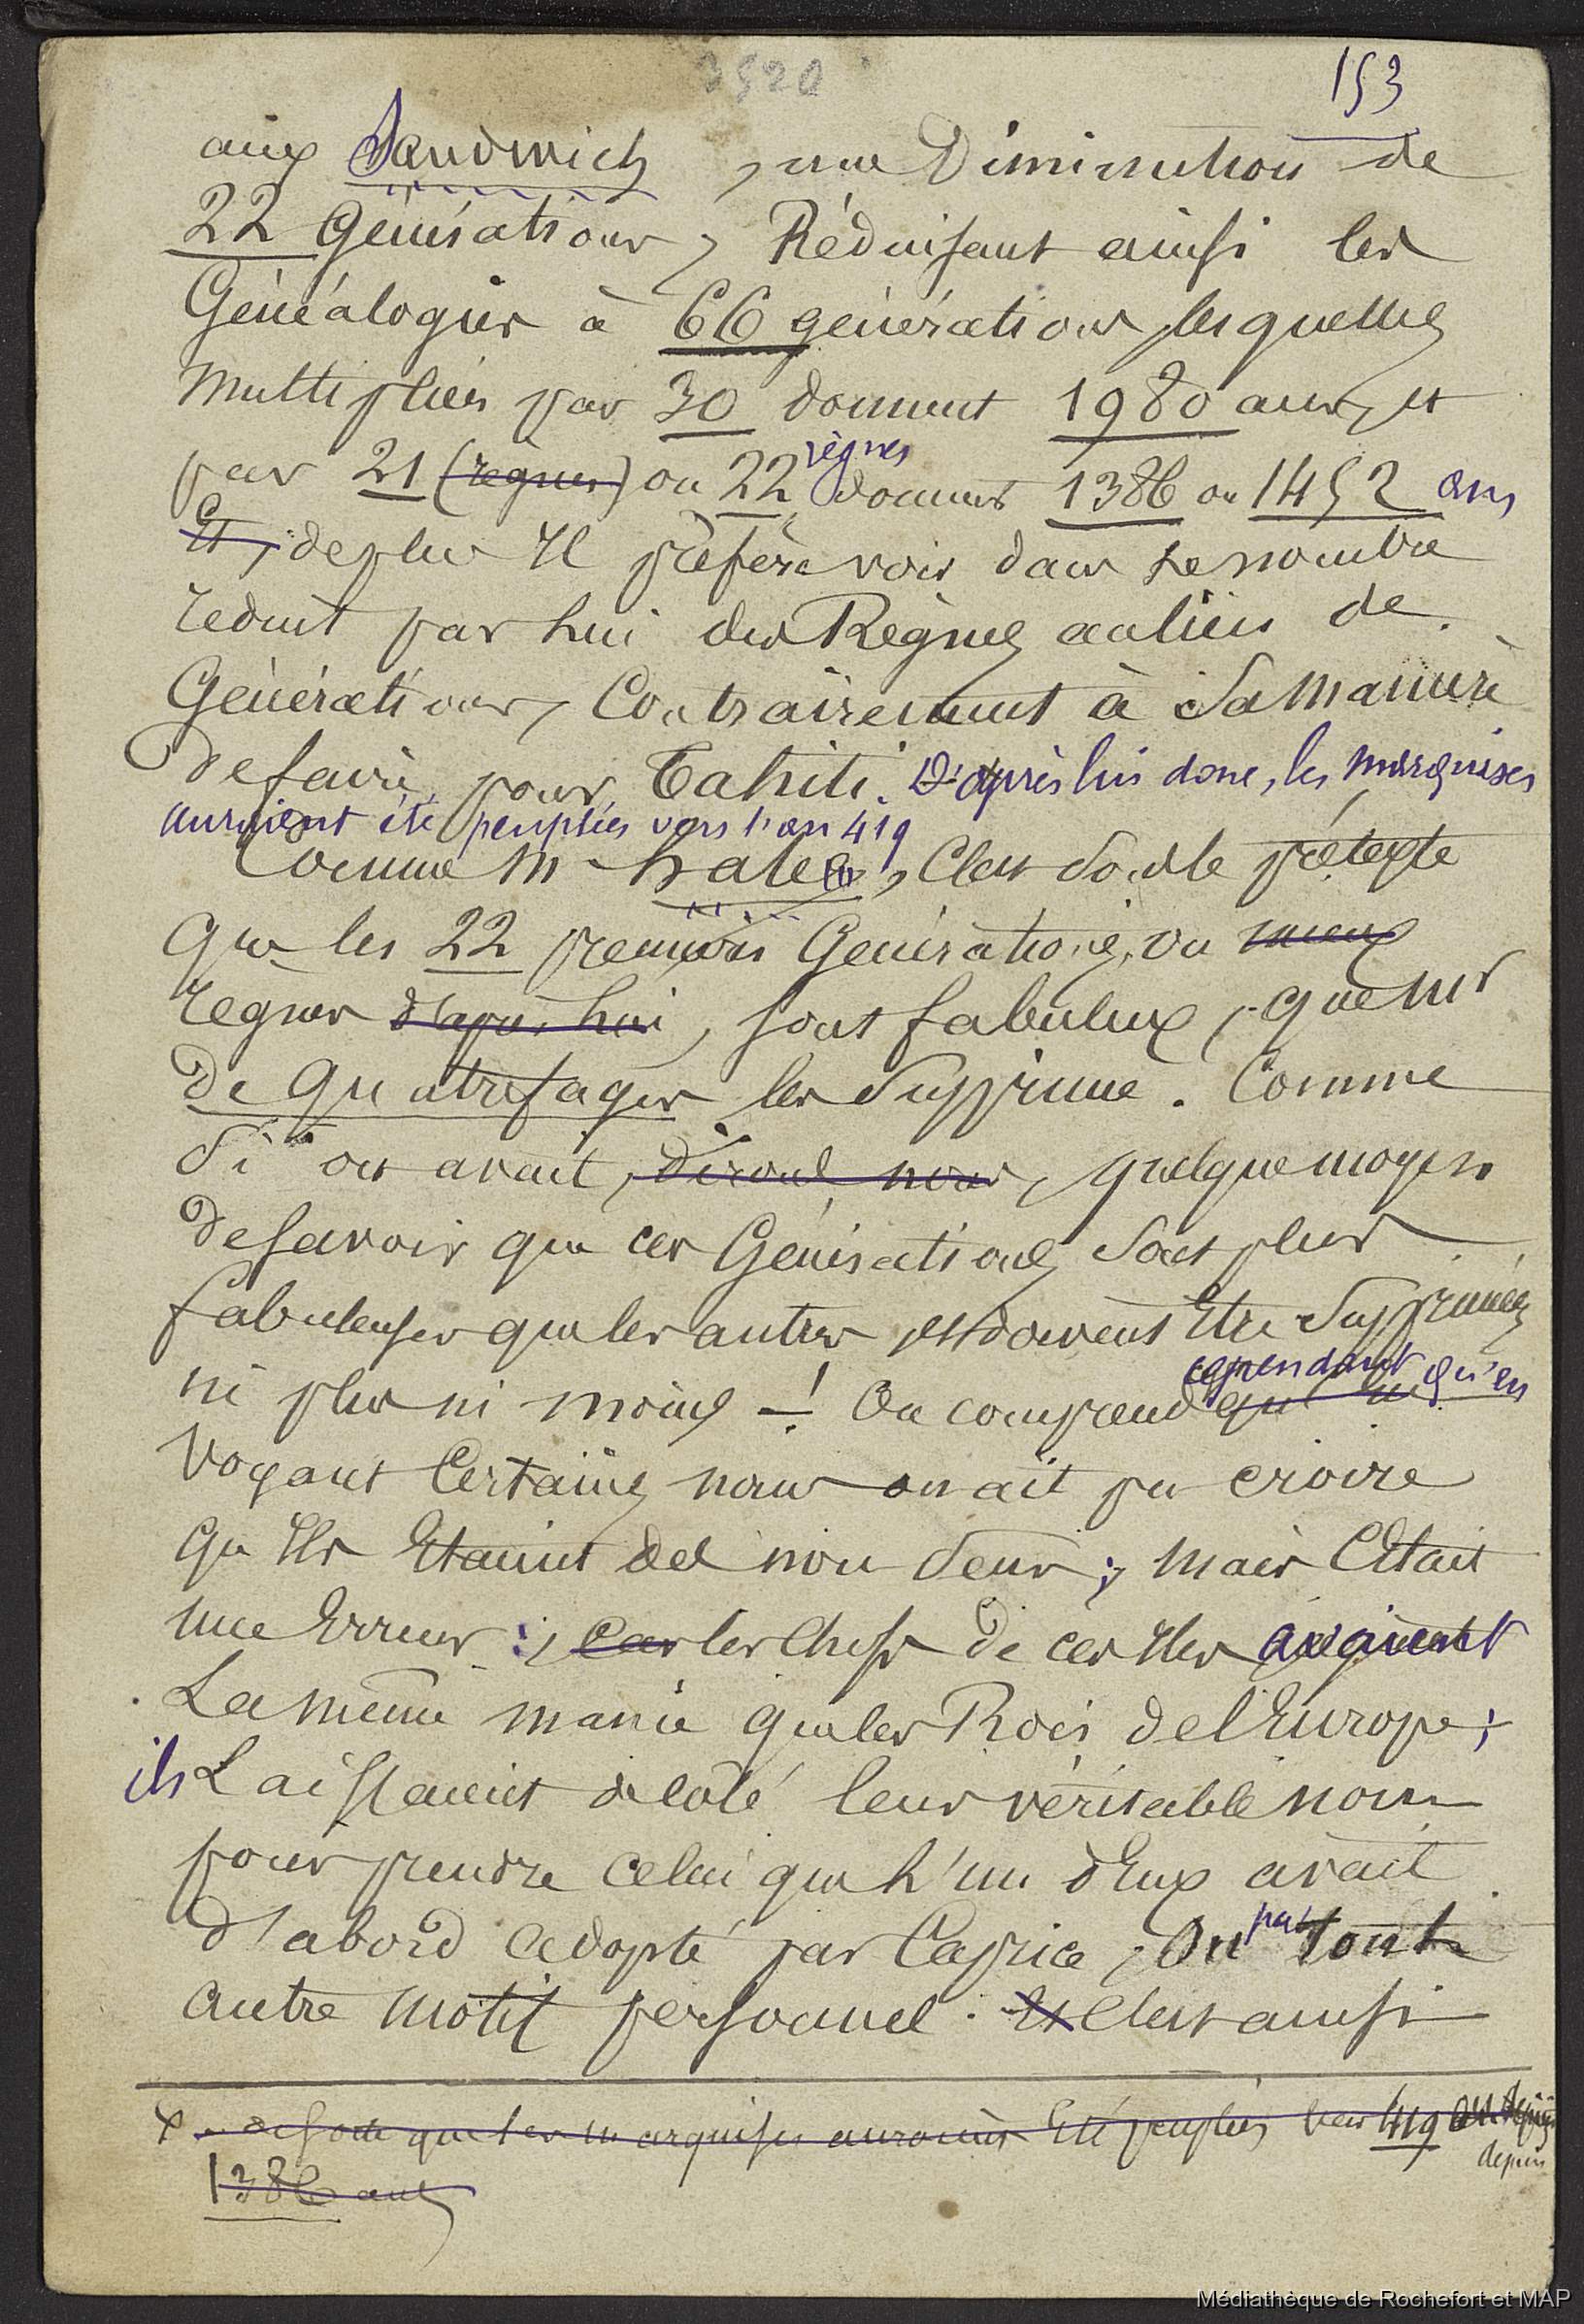 3520
153
aux Sandwich, une Diminution de
22 Générations, Réduisant ainsi les
Généalogies à 66 générations, lesquelles
multipliées par 30 donnent 1980 ans, et
par 21 (règnes) ou 22 règnes donnent 1386 ou 1452 ans
Et, de plus Il préfère voir dans le nombre
réduit par lui des Règnes au lieu de
Générations, Contrairement à sa manière
de faire pour Tahiti. D'après lui donc, les Marquises
auraient été peuplées vers l'an 419
Comme Mr hale, C'est sous le prétexte
que les 22 premières Générations, ou mieux
règnes d'après lui, sont fabuleux, que Mr
de Quatrefages les supprime. Comme
si on avait, disons nous, quelque moyen
de savoir que ces Générations sont plus
fabuleuses que les autres et doivent Etre Supprimées
ni plus ni moins _! On comprend cependant qu'en
voyant Certains noms on ait pu croire
qu'Ils Etaient des non sens; mais C'était
une Erreur: car les Chefs de ces Iles avaient
La même manie que les Rois de l'Europe;
ils Laissaient de côté leur véritable nom
pour prendre celui que l'un d'Eux avait
d'abord adopté par Caprice, Ou par tout
autre motif personnel. Et C'est ainsi
x - de sorte que les marquises auraient Eté peuplées vers 419 depuis
1386 ans
Médiathèque de Rochefort et MAP